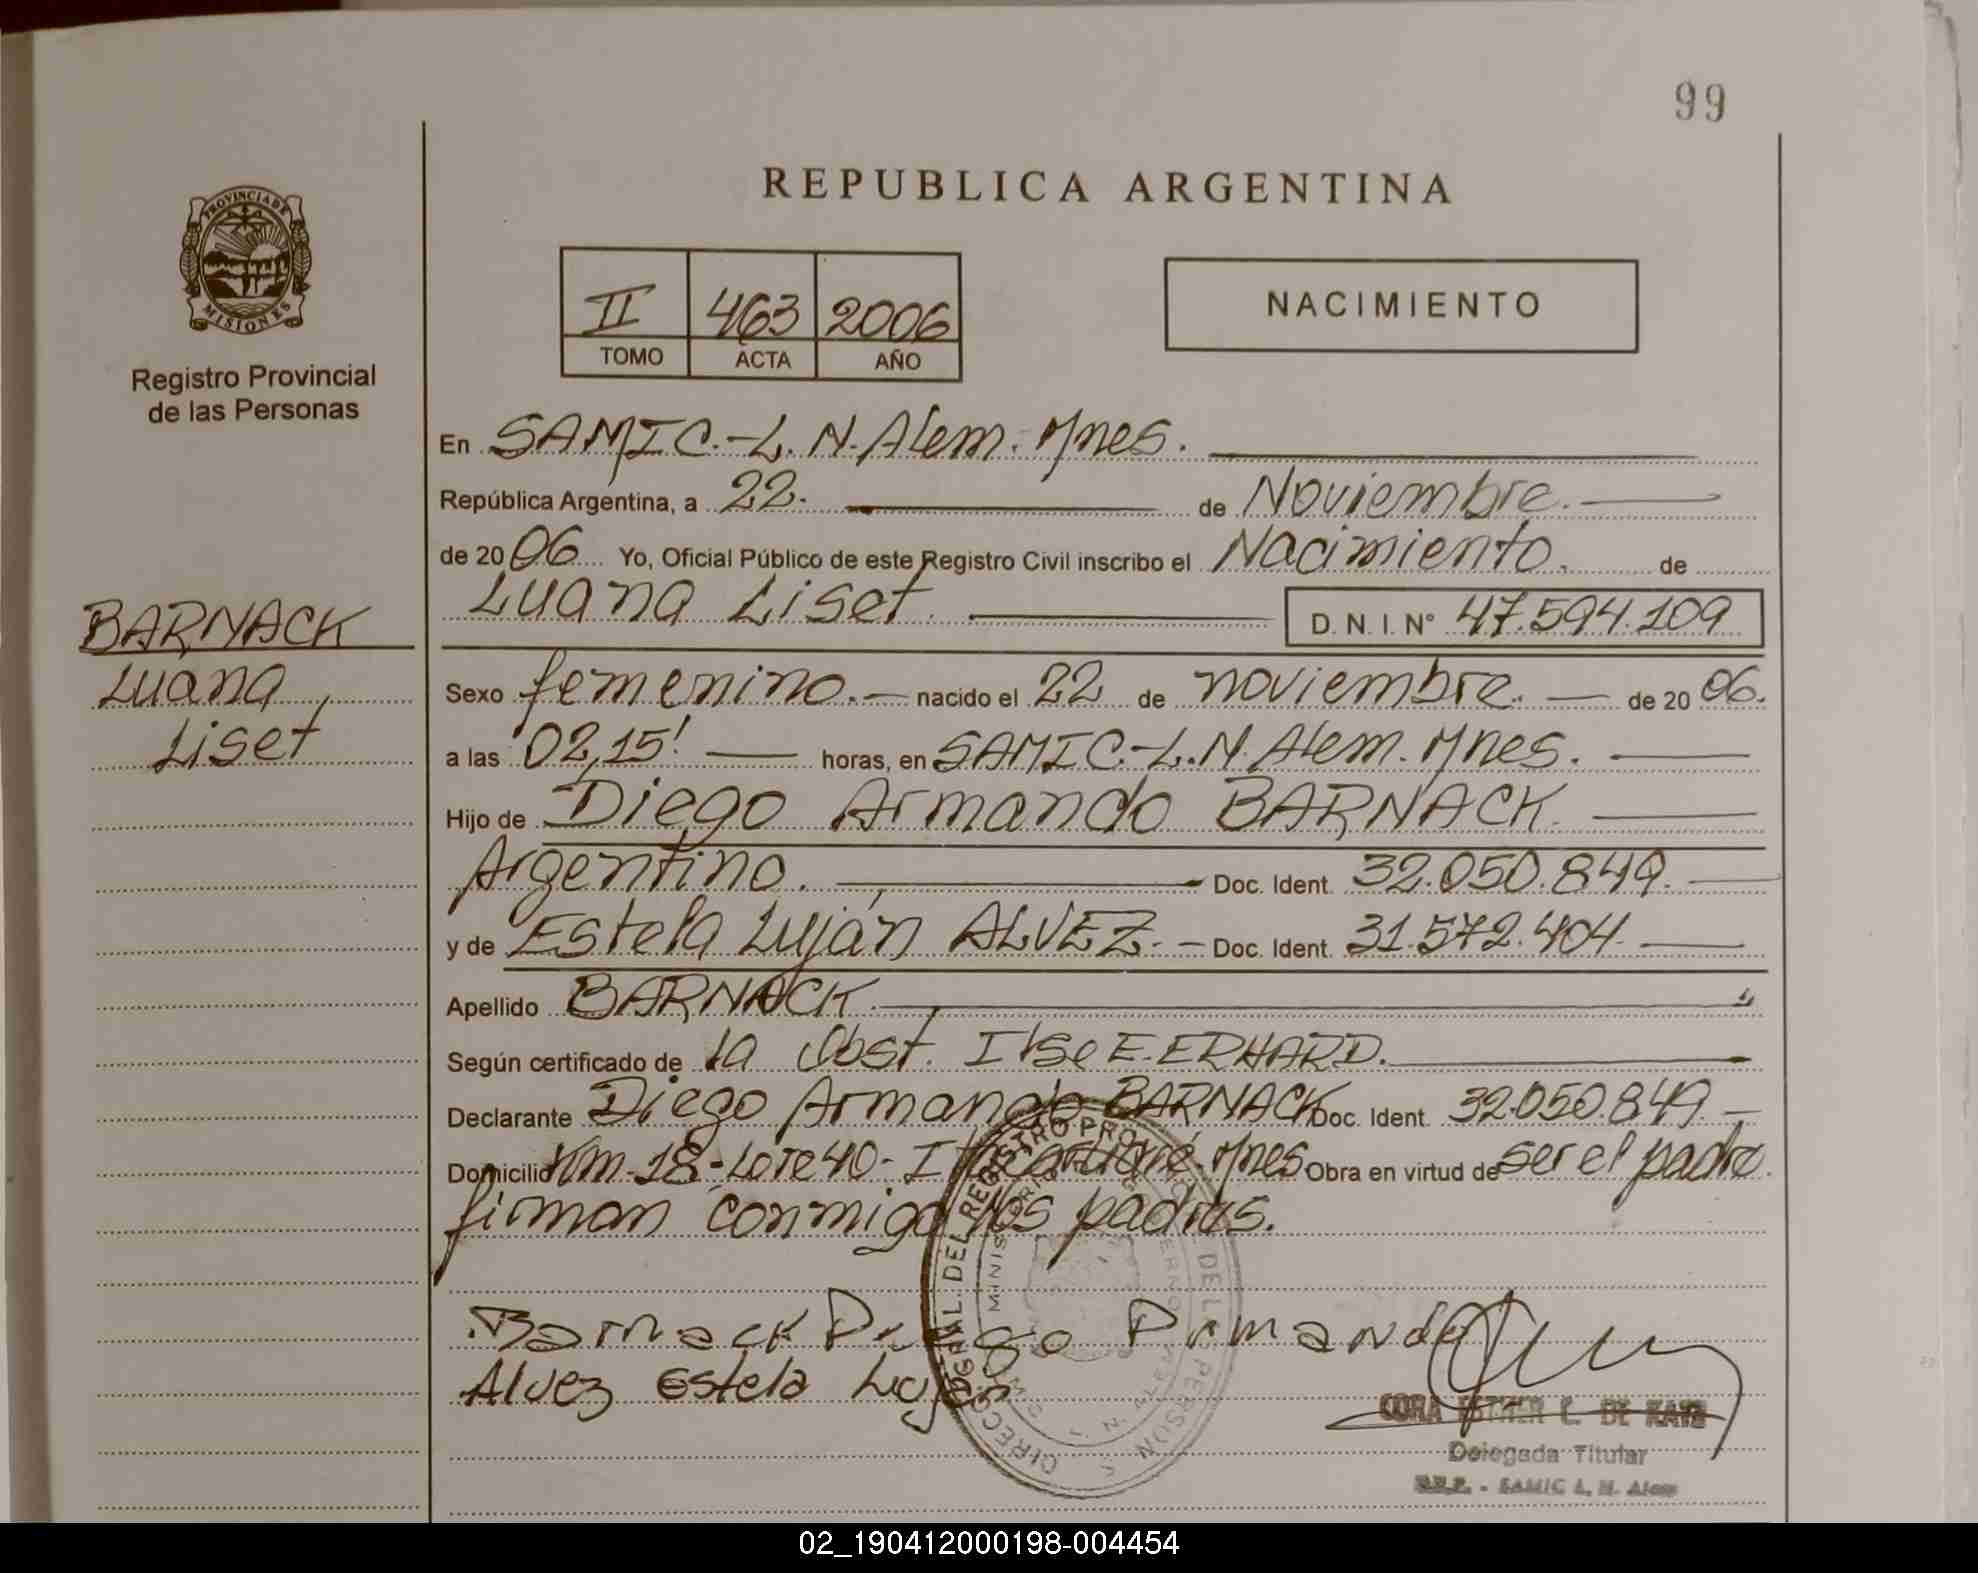 99
REPUBLICA ARGENTINA
PROVINCIA DE
MISIONES
Registro Provincial
de las Personas
II 463 2006
TOMO ACTA AÑO
NACIMIENTO
En SAMIC.-L.N.Alem. Mnes.
República Argentina, a 22. de Noviembre.
de 2006 Yo, Oficial Público de este Registro Civil inscribo el Nacimiento. de
Luana Liset D.N.I. N° 47.594.109
BARNACK
Luana
Liset
Sexo femenino. nacido el 22 de noviembre. de 2006.
a las 02,15' horas, en SAMIC.-L.N. Alem. Mnes.
Hijo de Diego Armando BARNACK.
Argentino. Doc. Ident. 32.050.849.
y de Estela Luján ALVEZ. Doc. Ident. 31.572.404.
Apellido BARNACK
Según certificado de la Obst. Ilse E. ERHARD.
Declarante Diego Armando BARNACK Doc. Ident. 32.050.849.
Domicilio Km. 18-Lote 40- Mnes. Obra en virtud de ser el padre.
firman conmigo los padres.
Barnack Diego Armando
Alvez Estela Lujan
CORA ESTHER C. DE
Delegada Titular
SAMIC L. N. Alem
02_190412000198-004454